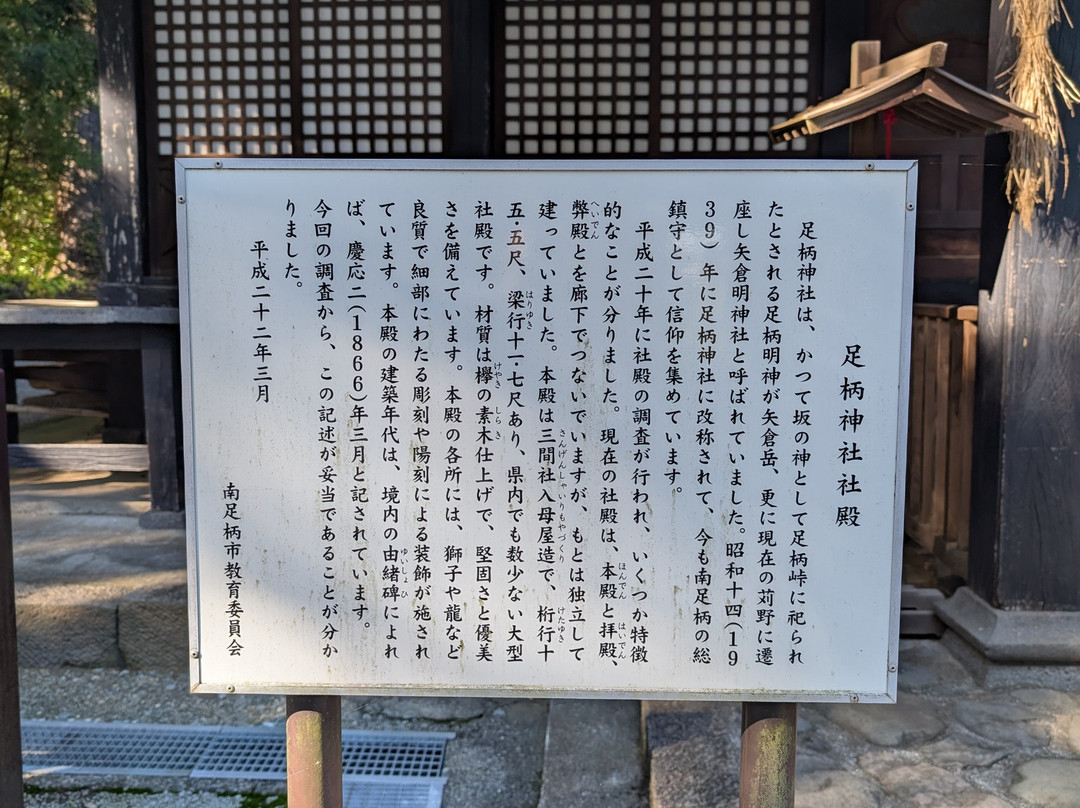 足柄神社社殿
足柄神社は、かつて坂の神として足柄峠に祀られ
たとされる足柄明神が矢倉岳、更に現在の苅野に遷
座し矢倉明神社と呼ばれていました。昭和十四(19
39)年に足柄神社に改称されて、今も南足柄の総
鎮守として信仰を集めています。
平成二十年に社殿の調査が行われ、いくつか特徴
的なことが分りました。現在の社殿は、本殿と拝殿、
弊殿とを廊下でつないでいますが、もとは独立して
建っていました。本殿は三間社入母屋造で、桁行十
五・五尺、梁行十一・七尺あり、県内でも数少ない大型
社殿です。材質は欅の素木仕上げで、堅固さと優美
さを備えています。本殿の各所には、獅子や龍など
良質で細部にわたる彫刻や陽刻による装飾が施され
ています。本殿の建築年代は、境内の由緒碑によれ
ば、慶応二(1866)年三月と記されています。
今回の調査から、この記述が妥当であることが分か
りました。
平成二十二年三月
南足柄市教育委員会